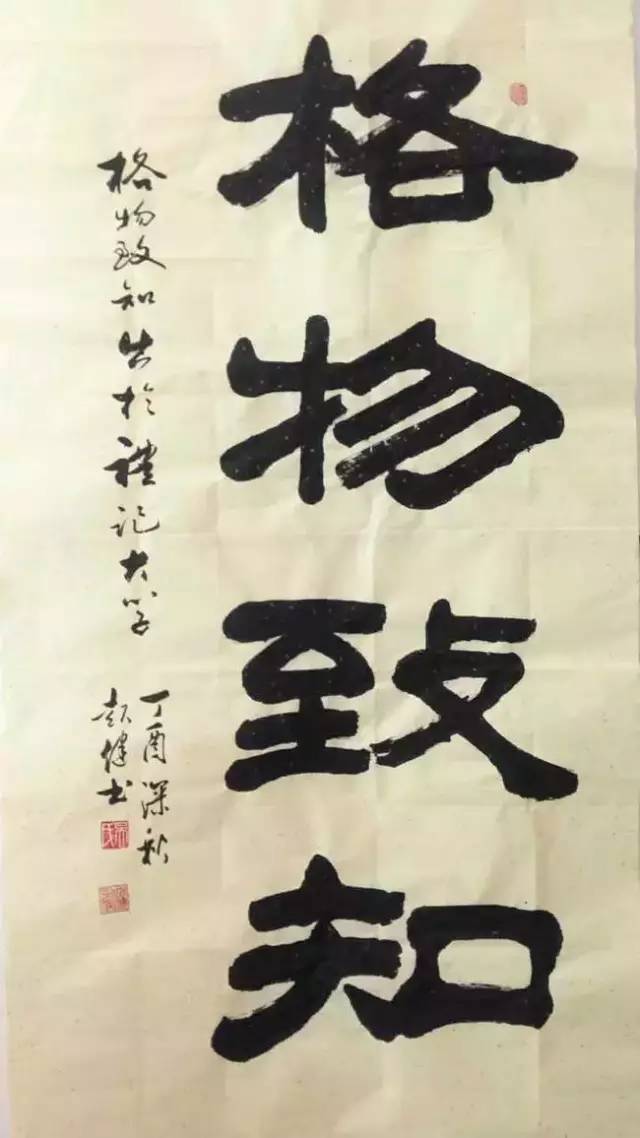 格物致知
格物致知出於禮记大学
丁酉深秋
健书